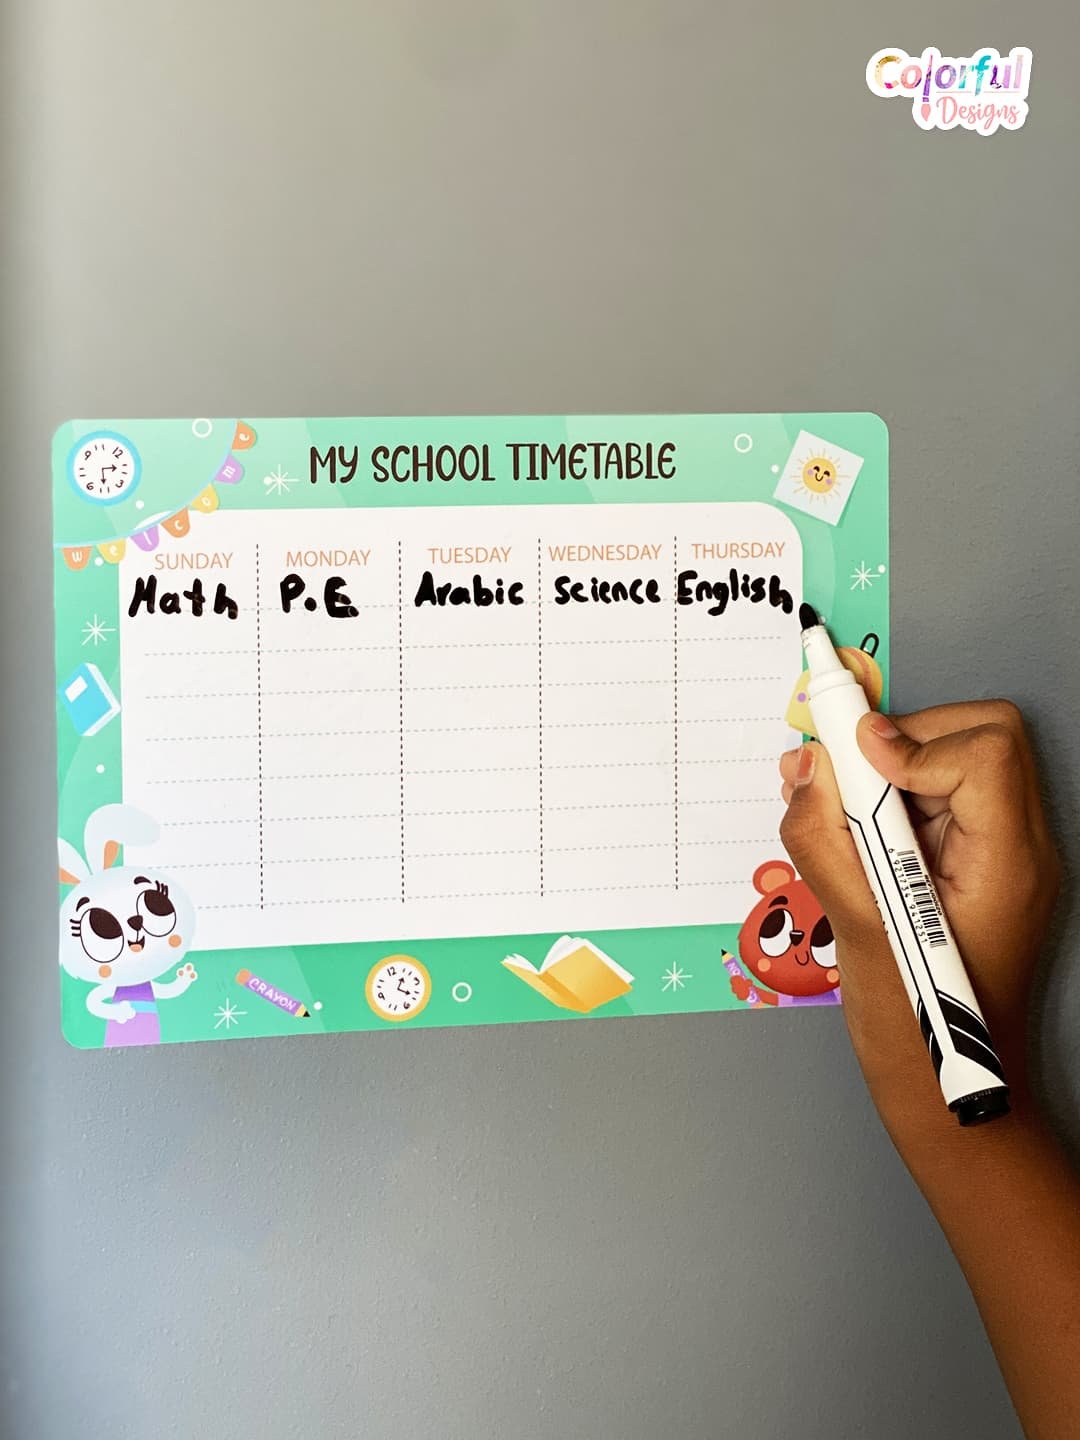 Colorful
Designs
MY SCHOOL TIMETABLE
welcome
SUNDAY MONDAY TUESDAY WEDNESDAY THURSDAY
Math P.E Arabic Science English
CRAYON
6 921734 941251